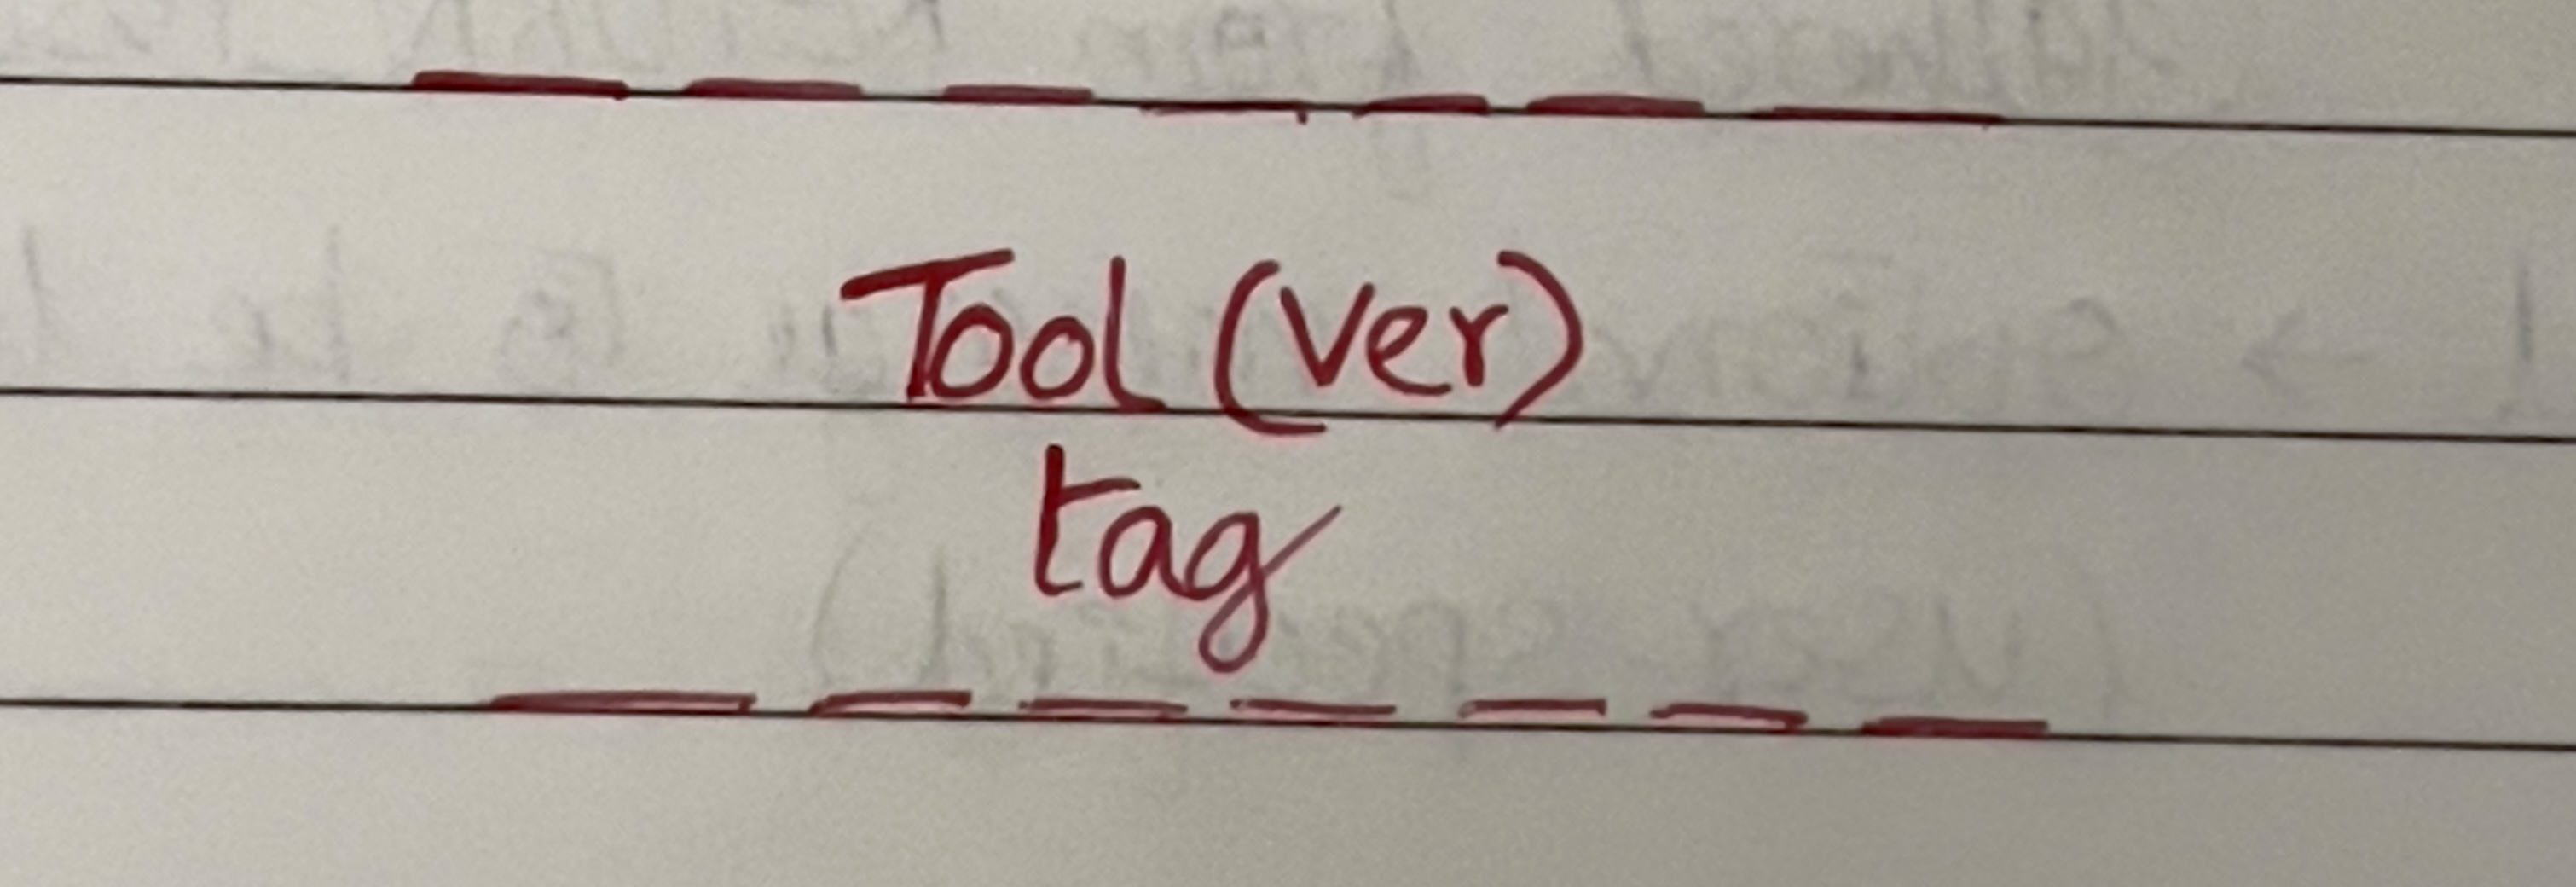 Tool (Ver)
tag